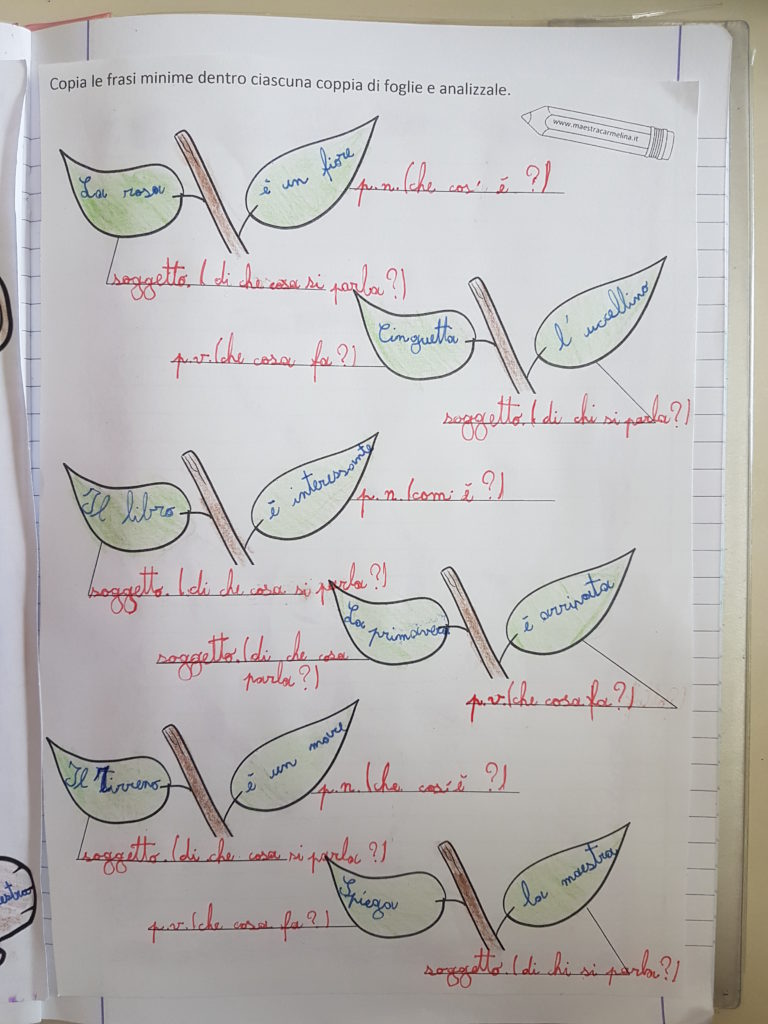 Copia le frasi minime dentro ciascuna coppia di foglie e analizzale.
www.maestracarmelina.it
La rosa
è un fiore
p.n. (che cos' è ?)
soggetto. (di che cosa si parla?)
Cinguetta
l' uccellino
p.v. (che cosa fa?)
soggetto. (di chi si parla?)
Il libro
è interessante
p.n. (com' è ?)
soggetto. (di che cosa si parla?)
La primavera
è arrivata
soggetto. (di che cosa
parla?)
p.v. (che cosa fa?)
Il Tirreno
è un mare
p.n. (che cos' è ?)
soggetto. (di che cosa si parla ?)
Spiega
la maestra
p.v. (che cosa fa?)
soggetto. (di hi si parla?)